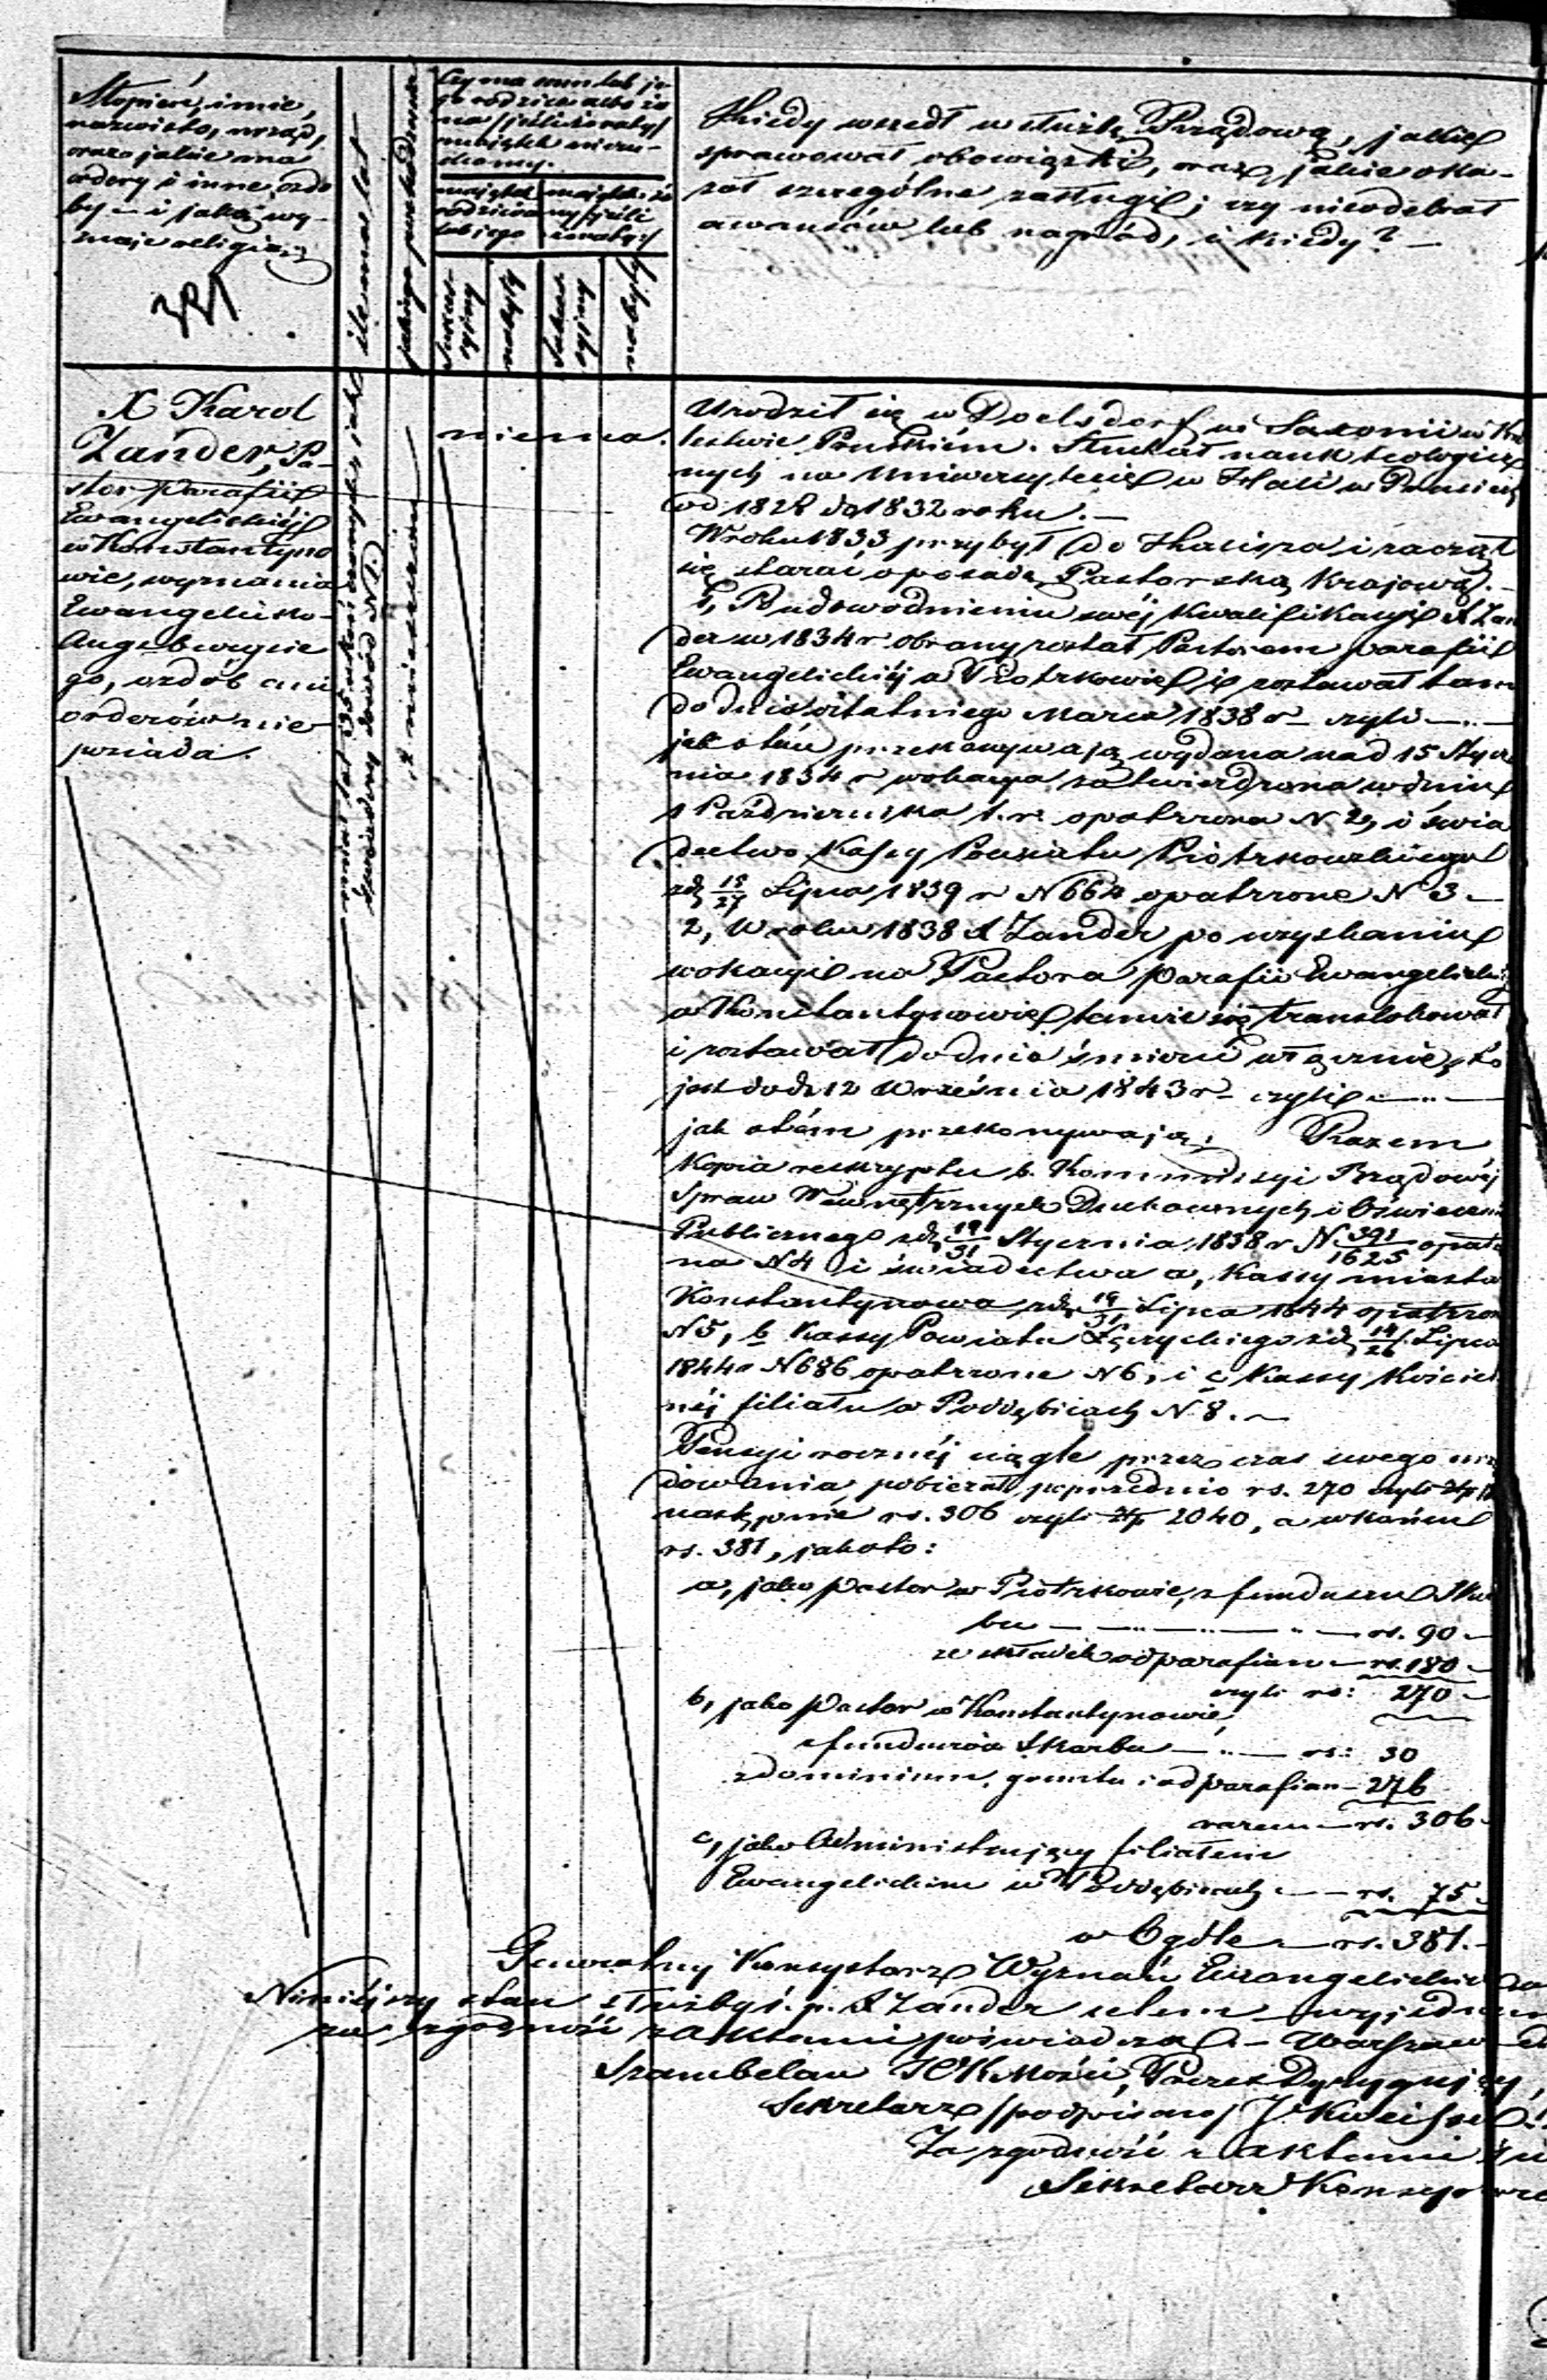 Stopień, imie,
nazwisko, urząd,
oraz jakie ma
ordery i inne ozdo
by – i jaką wy-
znaje religią
ile ma lat
jakiego pochodzenia
Czy ma sam lub je-
go rodzice albo żo
na /jeśli żonaty/
majątek nieru-
chomy.
majątek
rodziców
lub jego
majątek żo
ny /jeśli
żonaty/
sukces-
syiny
nabyty
sukces-
syiny
nabyty
Kiedy wszedł w służbę Rządową, jakie
sprawował obowiązki, oraz jakie oka-
zał szczególne zasługi; czy nieodebrał
awansów lub nagród, i kiedy? –
X Karol
Zander, Pa-
stor Parafii
Ewangelickiéj
w Konstantyno
wie, wyznania
Ewangelicko-
Augsburgskie
go, ozdób ani
orderów nie
posiada.
miał lat 35 ukończonych jak
świadczy dowód N 1.
z mieszczan
niema.
Urodził się w Doelsdorf w Saxonii w Kró
lestwie Pruskiém. Słuchał nauk teologicz
nych na Uniwersytecie w Hali w Prusiech
od 1828 do 1832 roku. –
W roku 1833 przybył do Kalisza i zaczął
się starać o posadę Pastorską Krajową. –
1, Po udowodnieniu swéj kwalifikacyi X Zan
der w 1834 r obrany został Pastorem parafii
Ewangelickiéj w Piotrkowie i zostawał tam
do dnia ostatniego Marca 1838 r – czyli – „ –
jak o tém przekonywają wydana nad 15 Stycz
nia 1834 r wokacya zatwierdzona w dniu
1 Października t. r. opatrzona N 2, i świa
dectwo Kassy Powiatu Piotrkowskiego
z d. 15/27 Lipca 1839 r N 664 opatrzone N 3 –
2, W roku 1838 X Zander po uzyskaniu
wokacyi na Pastora Parafii Ewangelickiéj
w Konstantynowie tamże się translokował
i zostawał do dnia śmierci włącznie, to
jest do d. 12 Września 1843 r – czyli – „ –
jak o tém przekonywają; Razem
Kopia reskryptu b. Kommissyi Rządowéj
Spraw Wewnętrznych Duchownych i Oświecenia
Publicznego z d. 19/31 Stycznia 1838 r N 391/1625 opatrzo
na N 4 i świadectwa a, Kassy miasta
Konstantynowa z d. 19/31 Lipca 1844 opatrzon
N 5, b Kassy Powiatu Łęczyckiego z d. 14/26 Lipca
1844 r N 686 opatrzone N 6, i c Kassy Kościel
néj filiału w Poddębicach N 8. –
Pensyi rocznéj ciągle przez czas swego urzę
dowania pobierał poprzednio rs. 270 czyli złp
następnie rs. 306 czyli złp 2040, a w końcu
rs. 381, jakoto:
a, jako Pastor w Piotrkowie, z funduszu Skar
bu – „ – „ – „ – rs. 90 –
ze składek od parafian – rs. 180 –
czyli rs: 270 –
b, jako Pastor w Konstantynowie,
z funduszu Skarbu – „ – rs: 30
z dominium, gruntu i od parafian – 276
razem – rs. 306 –
c, jako Administrujący filiałem
Ewangelickim w Poddębicach – rs. 75 –
w Ogóle – rs. 381. –
Generalny Konsystorz Wyznań Ewangelickich
Niniéjszy stan służby ś. p. X Zander celem wyjedna
za zgodność z aktami poświadcza. – Warszaw
Szambelan JCK Mości, Prezes Dyrygujący,
Sekretarz /podpisano/ J.
Za zgodność z aktami
Sekretarz Konsys